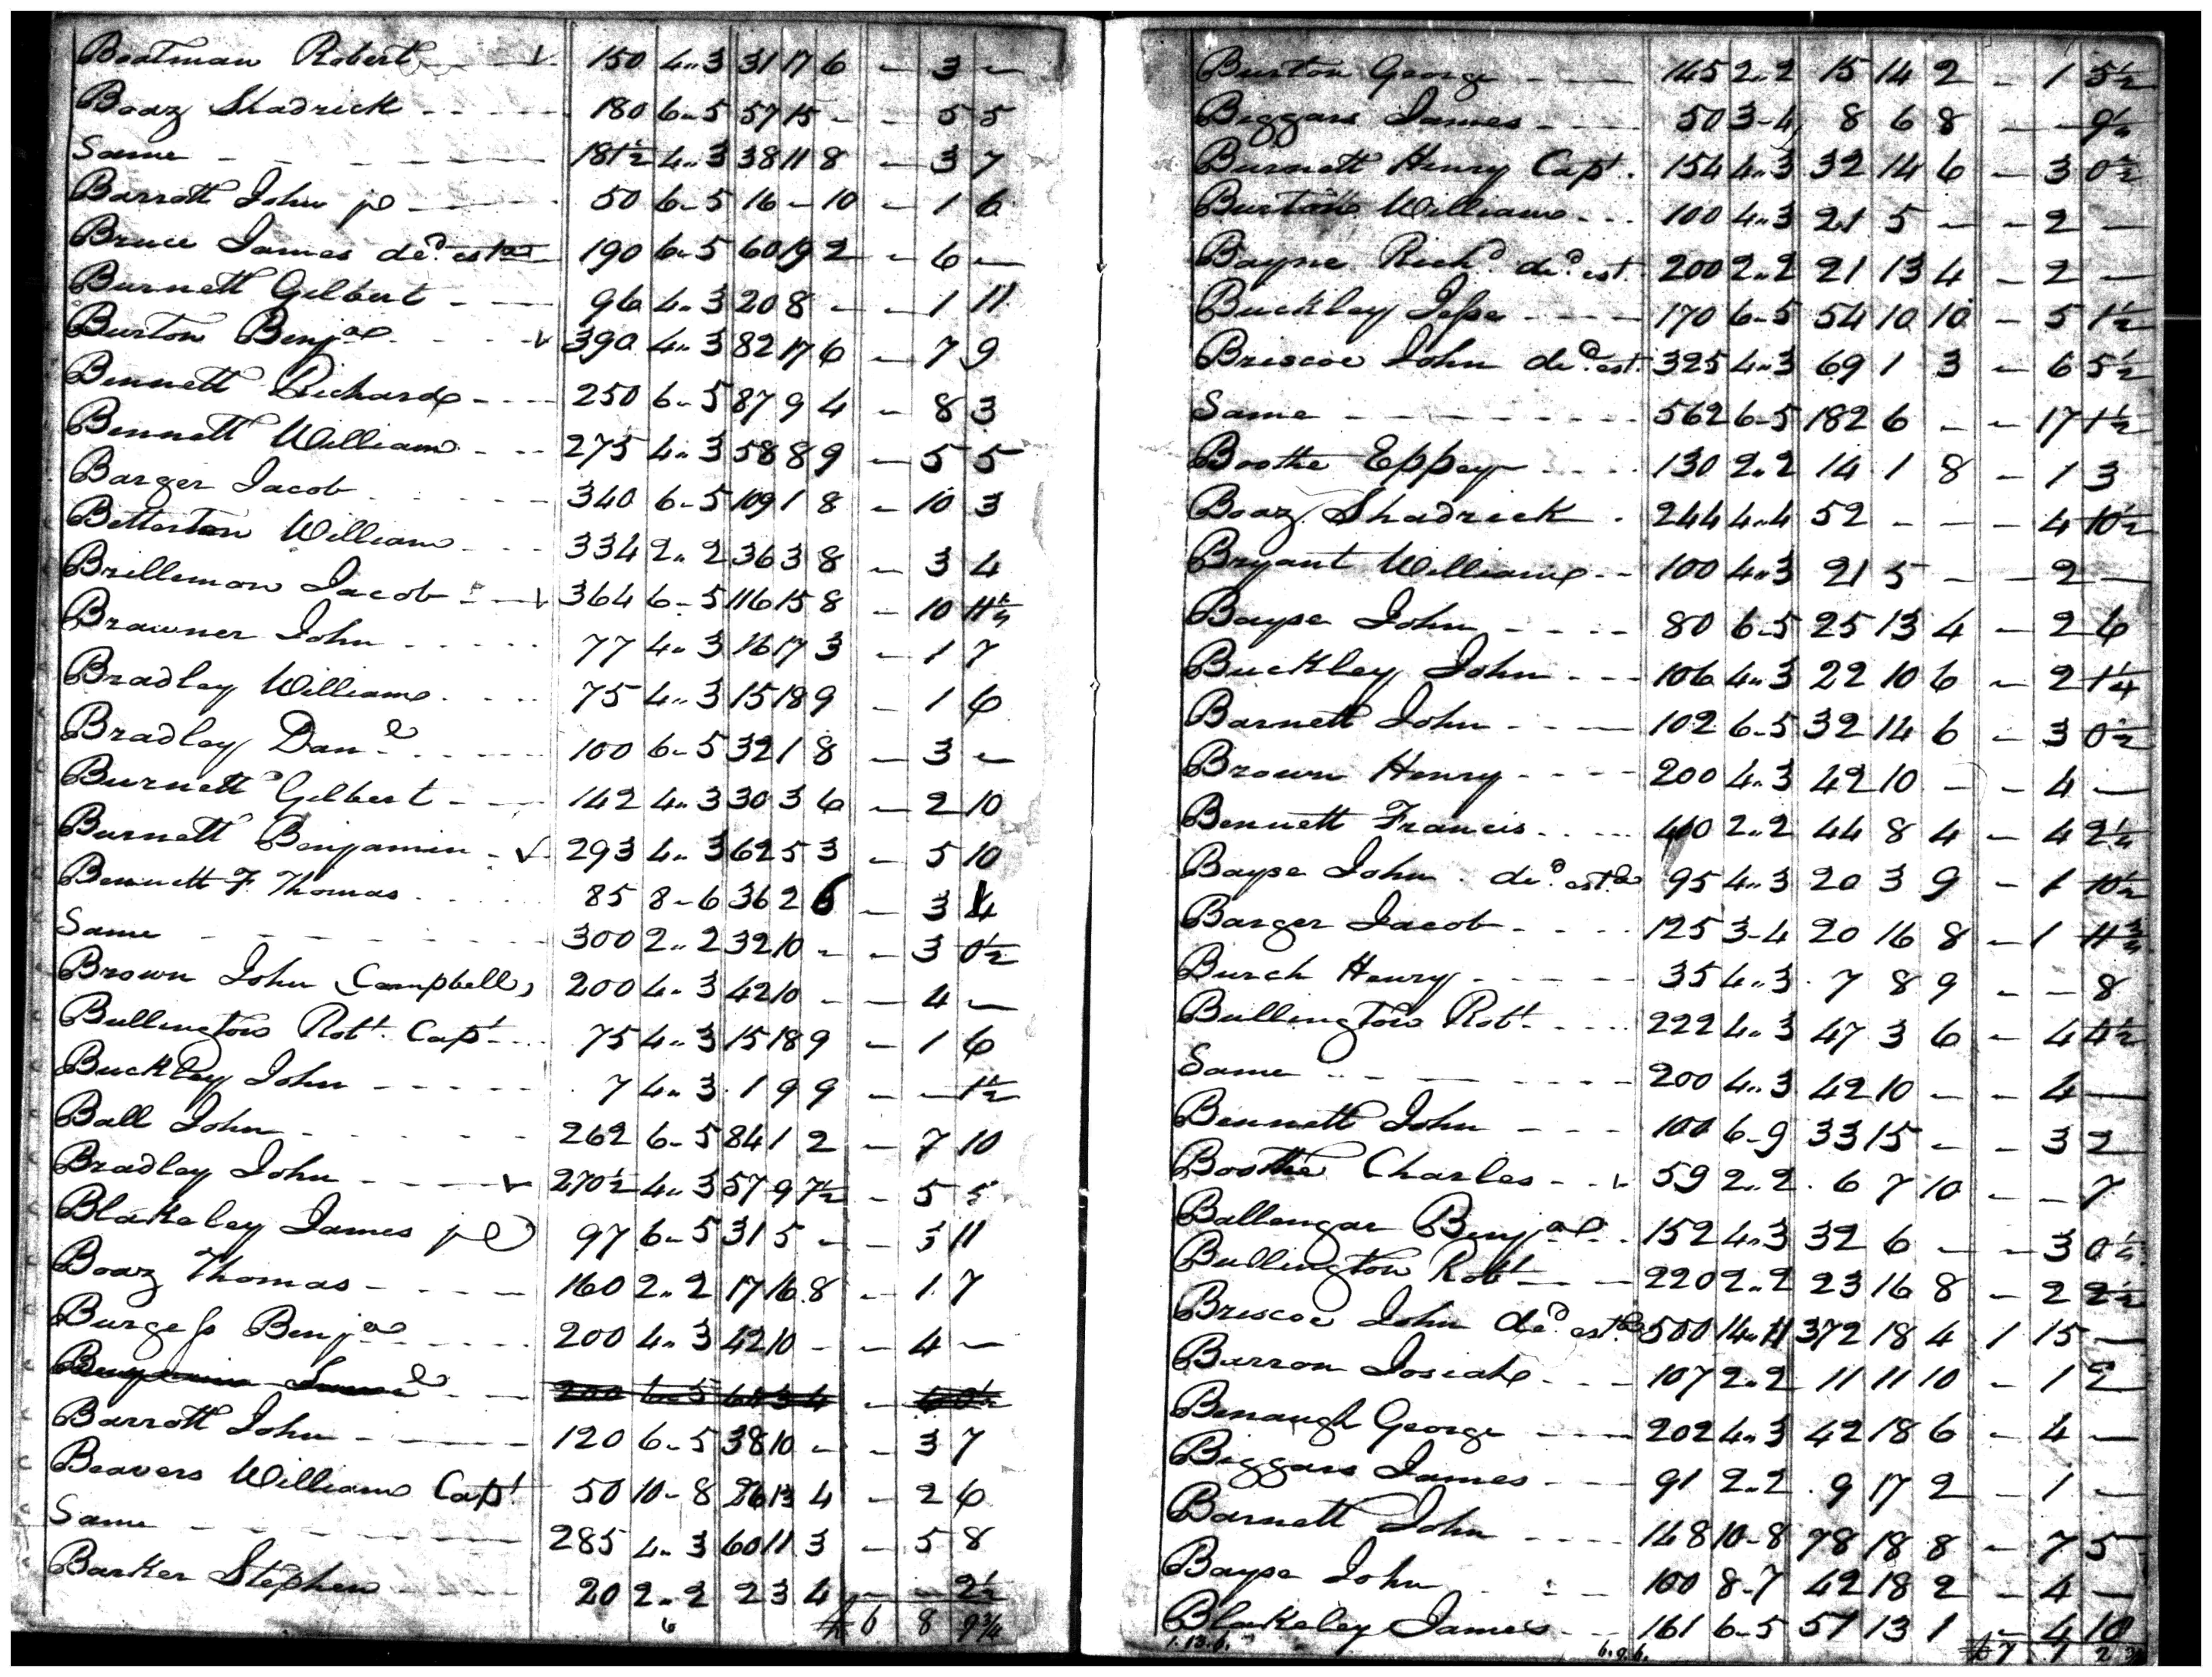 Boatman Robert - - v 150 4..3 31 17 6 - 3 -
Boaz Shadrick - - - - 180 6-5 57 15 - - 5 5
Same - - - - 181½ 4..3 38 11 8 - 3 7
Barrott John jr - - - 50 6-5 16 - 10 - 1 6
Bruce James decd estate 190 6-5 60 19 2 - 6 -
Burnett Gilbert - - - 96 4..3 20 8 - - 1 11
Burton Benja - - - v 390 4..3 82 17 6 - 7 9
Bennett Richard - - - 250 6-5 87 9 4 - 8 3
Bennett William - - - 275 4..3 58 8 9 - 5 5
Barger Jacob - - - 340 6-5 109 1 8 - 10 3
Betterton William - - - 334 2..2 36 3 8 - 3 4
Brilleman Jacob - - v 364 6-5 116 15 8 - 10 11¼
Brawner John - - - - 77 4..3 16 17 3 - 1 7
Bradley William - - - 75 4..3 15 18 9 - 1 6
Bradley Danl - - - 100 6-5 32 1 8 - 3 -
Burnett Gilbert - - - 142 4..3 30 3 6 - 2 10
Burnett Benjamin - v 293 4..3 62 5 3 - 5 10
Bennett F Thomas - - - 85 8-6 36 2 6 - 3 4
Same - - - - 300 2..2 32 10 - - 3 0½
Brown John (Campbell) 200 4..3 42 10 - - 4 -
Bullington Robt Capt - - 75 4..3 15 18 9 - 1 6
Buckley John - - - - 7 4..3 1 9 9 - - 1½
Ball John - - - - 262 6-5 84 1 2 - 7 10
Bradley John - - - v 270½ 4..3 57 9 7½ - 5 5
Blakeley James jr 97 6-5 31 5 - - 3 11
Boaz Thomas - - - - 160 2..2 17 16 8 - 1 7
Burgess Benja - - - 200 4..3 42 10 - - 4 -
200 6-5 64 3 4 - 6 0½
Barrott John - - - 120 6-5 38 10 - - 3 7
Beavers William Capt 50 10-8 26 13 4 - 2 6
Same - - - - 285 4..3 60 11 3 - 5 8
Barker Stephen - - - 20 2..2 2 3 4 - - 2½
6 6 8 9¾
Burton George - - - 145 2..2 15 14 2 - 1 5½
Biggars James - - - 50 3-4 8 6 8 - - 9¼
Burnett Henry Capt. 154 4..3 32 14 6 - 3 0½
Burton William - - - 100 4..3 21 5 - - 2 -
Bayne Richd decd est. 200 2..2 21 13 4 - 2 -
Buckley Jesse - - - 170 6-5 54 10 10 - 5 1½
Briscoe John decd est. 325 4..3 69 1 3 - 6 5½
Same - - - - 562 6-5 182 6 - - 17 1½
Boothe Eppey - - - 130 2..2 14 1 8 - 1 3
Boaz Shadrick - 244 4..4 52 - - - 4 10½
Bryant William - - 100 4..3 21 5 - - 2 -
Bayse John - - - - 80 6-5 25 13 4 - 2 6
Buckley John - - - 106 4..3 22 10 6 - 2 1¼
Barnett John - - - 102 6-5 32 14 6 - 3 0½
Brown Henry - - - - 200 4..3 42 10 - - 4 -
Bennett Francis - - - 410 2..2 44 8 4 - 4 2¼
Bayse John decd estate 95 4..3 20 3 9 - 1 10½
Barger Jacob - - - 125 3-4 20 16 8 - 1 11¾
Burch Henry - - - 35 4..3 7 8 9 - - 8
Bullington Robt - - - 222 4..3 47 3 6 - 4 4½
Same - - - - 200 4..3 42 10 - - 4 -
Bennett John - - - 100 6-9 33 15 - - 3 2
Boothe Charles - - v 59 2..2 6 7 10 - - 7
Ballengar Benja - - 152 4..3 32 6 - - 3 0¼
Bullington Robt - - 220 2..2 23 16 8 - 2 2½
Briscoe John decd estate 500 14..11 372 18 4 1 15 -
Burron Josiah - - - 107 2..2 11 11 10 - 1 2
Benaugh George - - - 202 4..3 42 18 6 - 4 -
Biggars James - - - 91 2..2 9 17 2 - 1 -
Barnett John - - - - 148 10-8 78 18 8 - 7 5
Bayse John - - - 100 8-7 42 18 2 - 4 -
Blakeley James - - 161 6-5 51 13 1 - 4 10
1.13.6. 6.9.6. 7 7 2